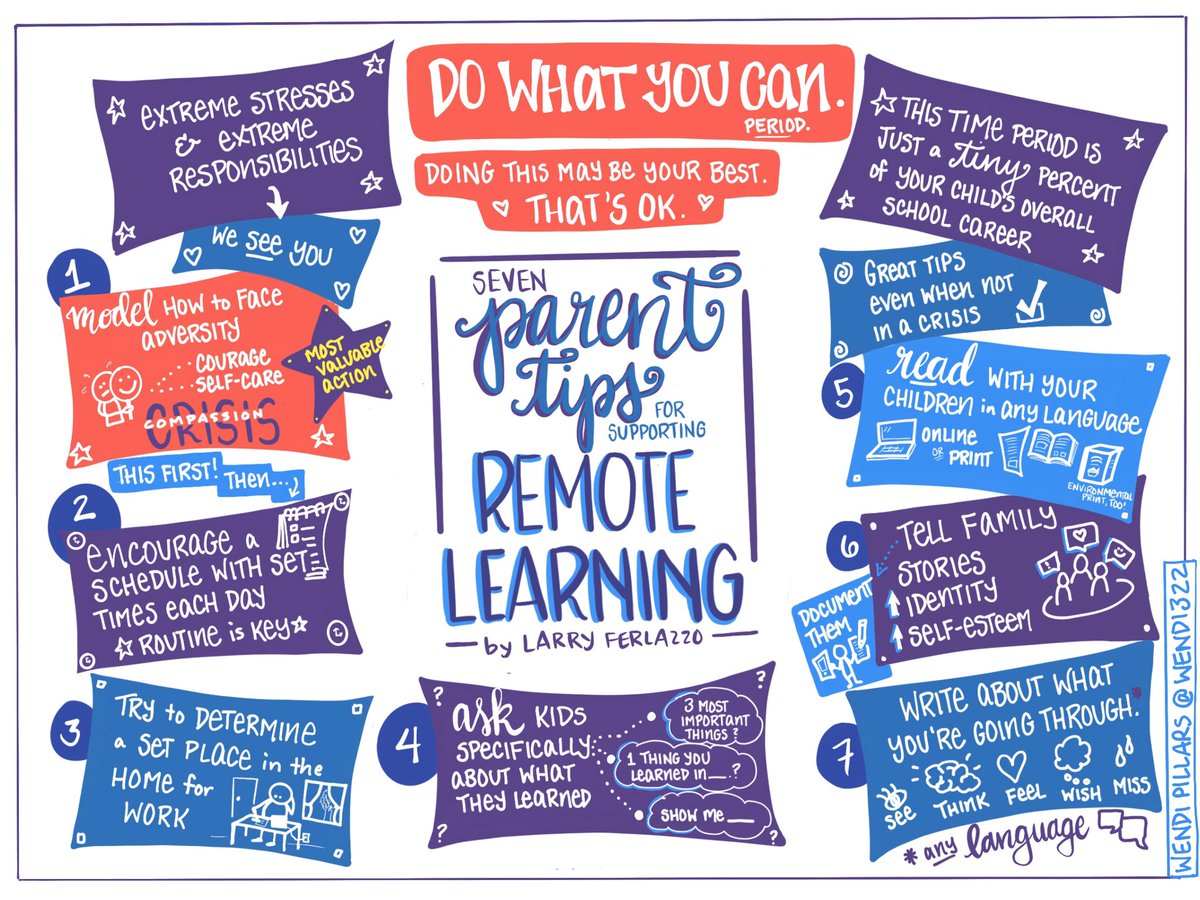 DO WHAT YOU CAN.
PERIOD.
DOING THIS MAY BE YOUR BEST.
THAT'S OK.
EXTREME STRESSES
& EXTREME
RESPONSIBILITIES
WE SEE YOU
THIS TIME PERIOD IS
JUST A tiny PERCENT
OF YOUR CHILD'S OVERALL
SCHOOL CAREER
GREAT TIPS
EVEN WHEN NOT
IN A CRISIS
SEVEN
parent
tips
FOR
SUPPORTING
REMOTE
LEARNING
by LARRY FERLAZZO
1
model HOW to FACE
ADVERSITY
COURAGE
SELF-CARE
COMPASSION
CRISIS
MOST
VALUABLE
ACTION
THIS FIRST! THEN...
2
ENCOURAGE A
SCHEDULE WITH SET
TIMES EACH DAY
ROUTINE IS KEY
3
TRY to DETERMINE
a SET PLACE in the
HOME for
WORK
4
ask KIDS
SPECIFICALLY
ABOUT WHAT
THEY LEARNED
3 MOST
IMPORTANT
THINGS?
1 THING YOU
LEARNED IN __?
SHOW ME __
5
read WITH YOUR
CHILDREN in ANY LANGUAGE
ONLINE
OR PRINT
ENVIRONMENTAL
PRINT, TOO!
6
TELL FAMILY
STORIES
IDENTITY
SELF-ESTEEM
DOCUMENT
THEM
7
WRITE ABOUT WHAT
YOU'RE GOING THROUGH.*
SEE THINK FEEL WISH MISS
* any language
WENDI PILLARS @WENDI322